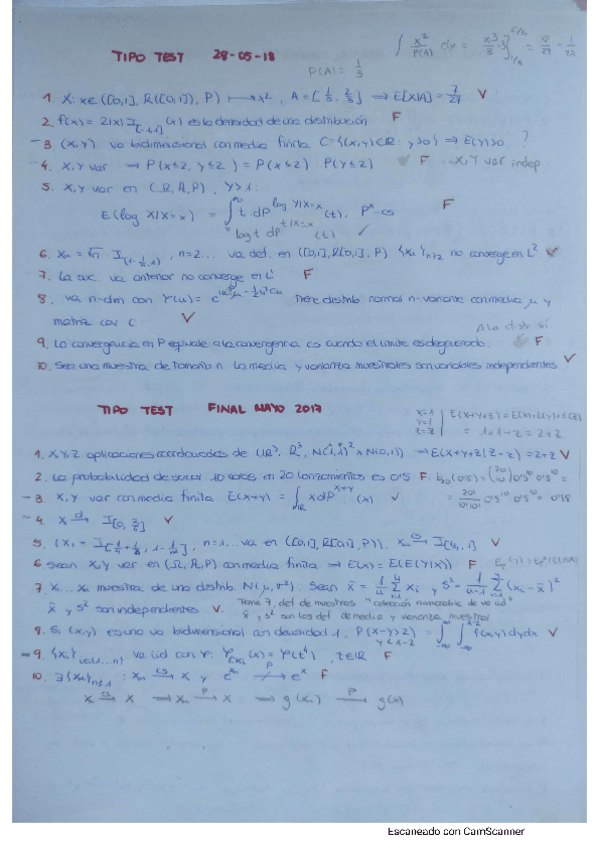 TIPO TEST 28-05-18
P(A) = 1/3
∫ x²/P(A) dx = x³/3 · 3
1. X: x∈([0,1], R([0,1]), P) ⟼ x², A=[1/3, 2/3] ⟹ E[X|A] = 7/27 V
2. f(x) = 2|x| I[-1,1](x) es la densidad de una distribución F
- 3. (X,Y) va bidimensional con media finita C={(x,y)∈R: y>0} ⟹ E(Y)>0 ?
- 4. X,Y var ⟹ P(X≤2, Y≤2) = P(X≤2) P(Y≤2) F X,Y var indep
5. X,Y var en (Ω,A,P), Y>1:
E(log Y|X=x) = ∫ t dP^{log Y|X=x}(t). P^x-cs F
log t dP (t) ✓
6. Xn = √n I, n=2... va def. en ([0,1], R[0,1], P) {Xn}n≥2 no converge en L² V
7. La suc. va anterior no converge en L¹ F
8. va n-dim con φ(u) = e^{iu'μ - ½u'Cu} tiene distrib normal n-variante con media μ y
matriz cov C V
A la distr sí
9. La convergencia en P equivale a la convergencia cs cuando el límite es degenerado. F
10. Sea una muestra de tamaño n. La media y varianza muestrales son variables independientes V
TIPO TEST FINAL MAYO 2017
X=1 Y=1 | E(X+Y+Z) = E(X)+E(Y)+E(Z)
= 1+1+2 = 2+2
1. XYZ aplicaciones coordenadas de (R³, R³, N(1,1)² × N(0,1)) ⟹ E(X+Y+Z|Z=z) = 2+z V
2. La probabilidad de sacar 10 caras en 20 lanzamientos es 0'5 F
- 3. X,Y var con media finita E(X+Y) = ∫_R x dP^{X+Y}(x) V
- 4. Xn →d V
5. n=1... va en ([0,1], R[0,1], P)}, Xn →cs V
6. Sean X,Y var en (Ω,A,P) con media finita ⟹ E(X) = E(E(Y|X)) F
7. X1...Xn muestra de una distrib N(μ,σ²). Sean x̄ = 1/n Σ xi, S² = 1/(n-1) Σ (xi - x̄)²
x̄ y S² son independientes V. Tema 7, def de muestras "colección numerable de va iid"
x̄ y S² son las def de media y varianza muestral
8. Si (X,Y) es una va bidimensional con densidad f, P(X-Y>2) = ∫∫ f(x,y) dy dx V
y < x-2
- 9. {Xi} va iid con φ: t∈R F
10. ∃{Xn}n≥1 : Xn →cs X y e^{Xn} ↛P e^X F
Xn →cs X ⟹ Xn →P X ⟹ g(Xn) →P g(X)
Escaneado con CamScanner